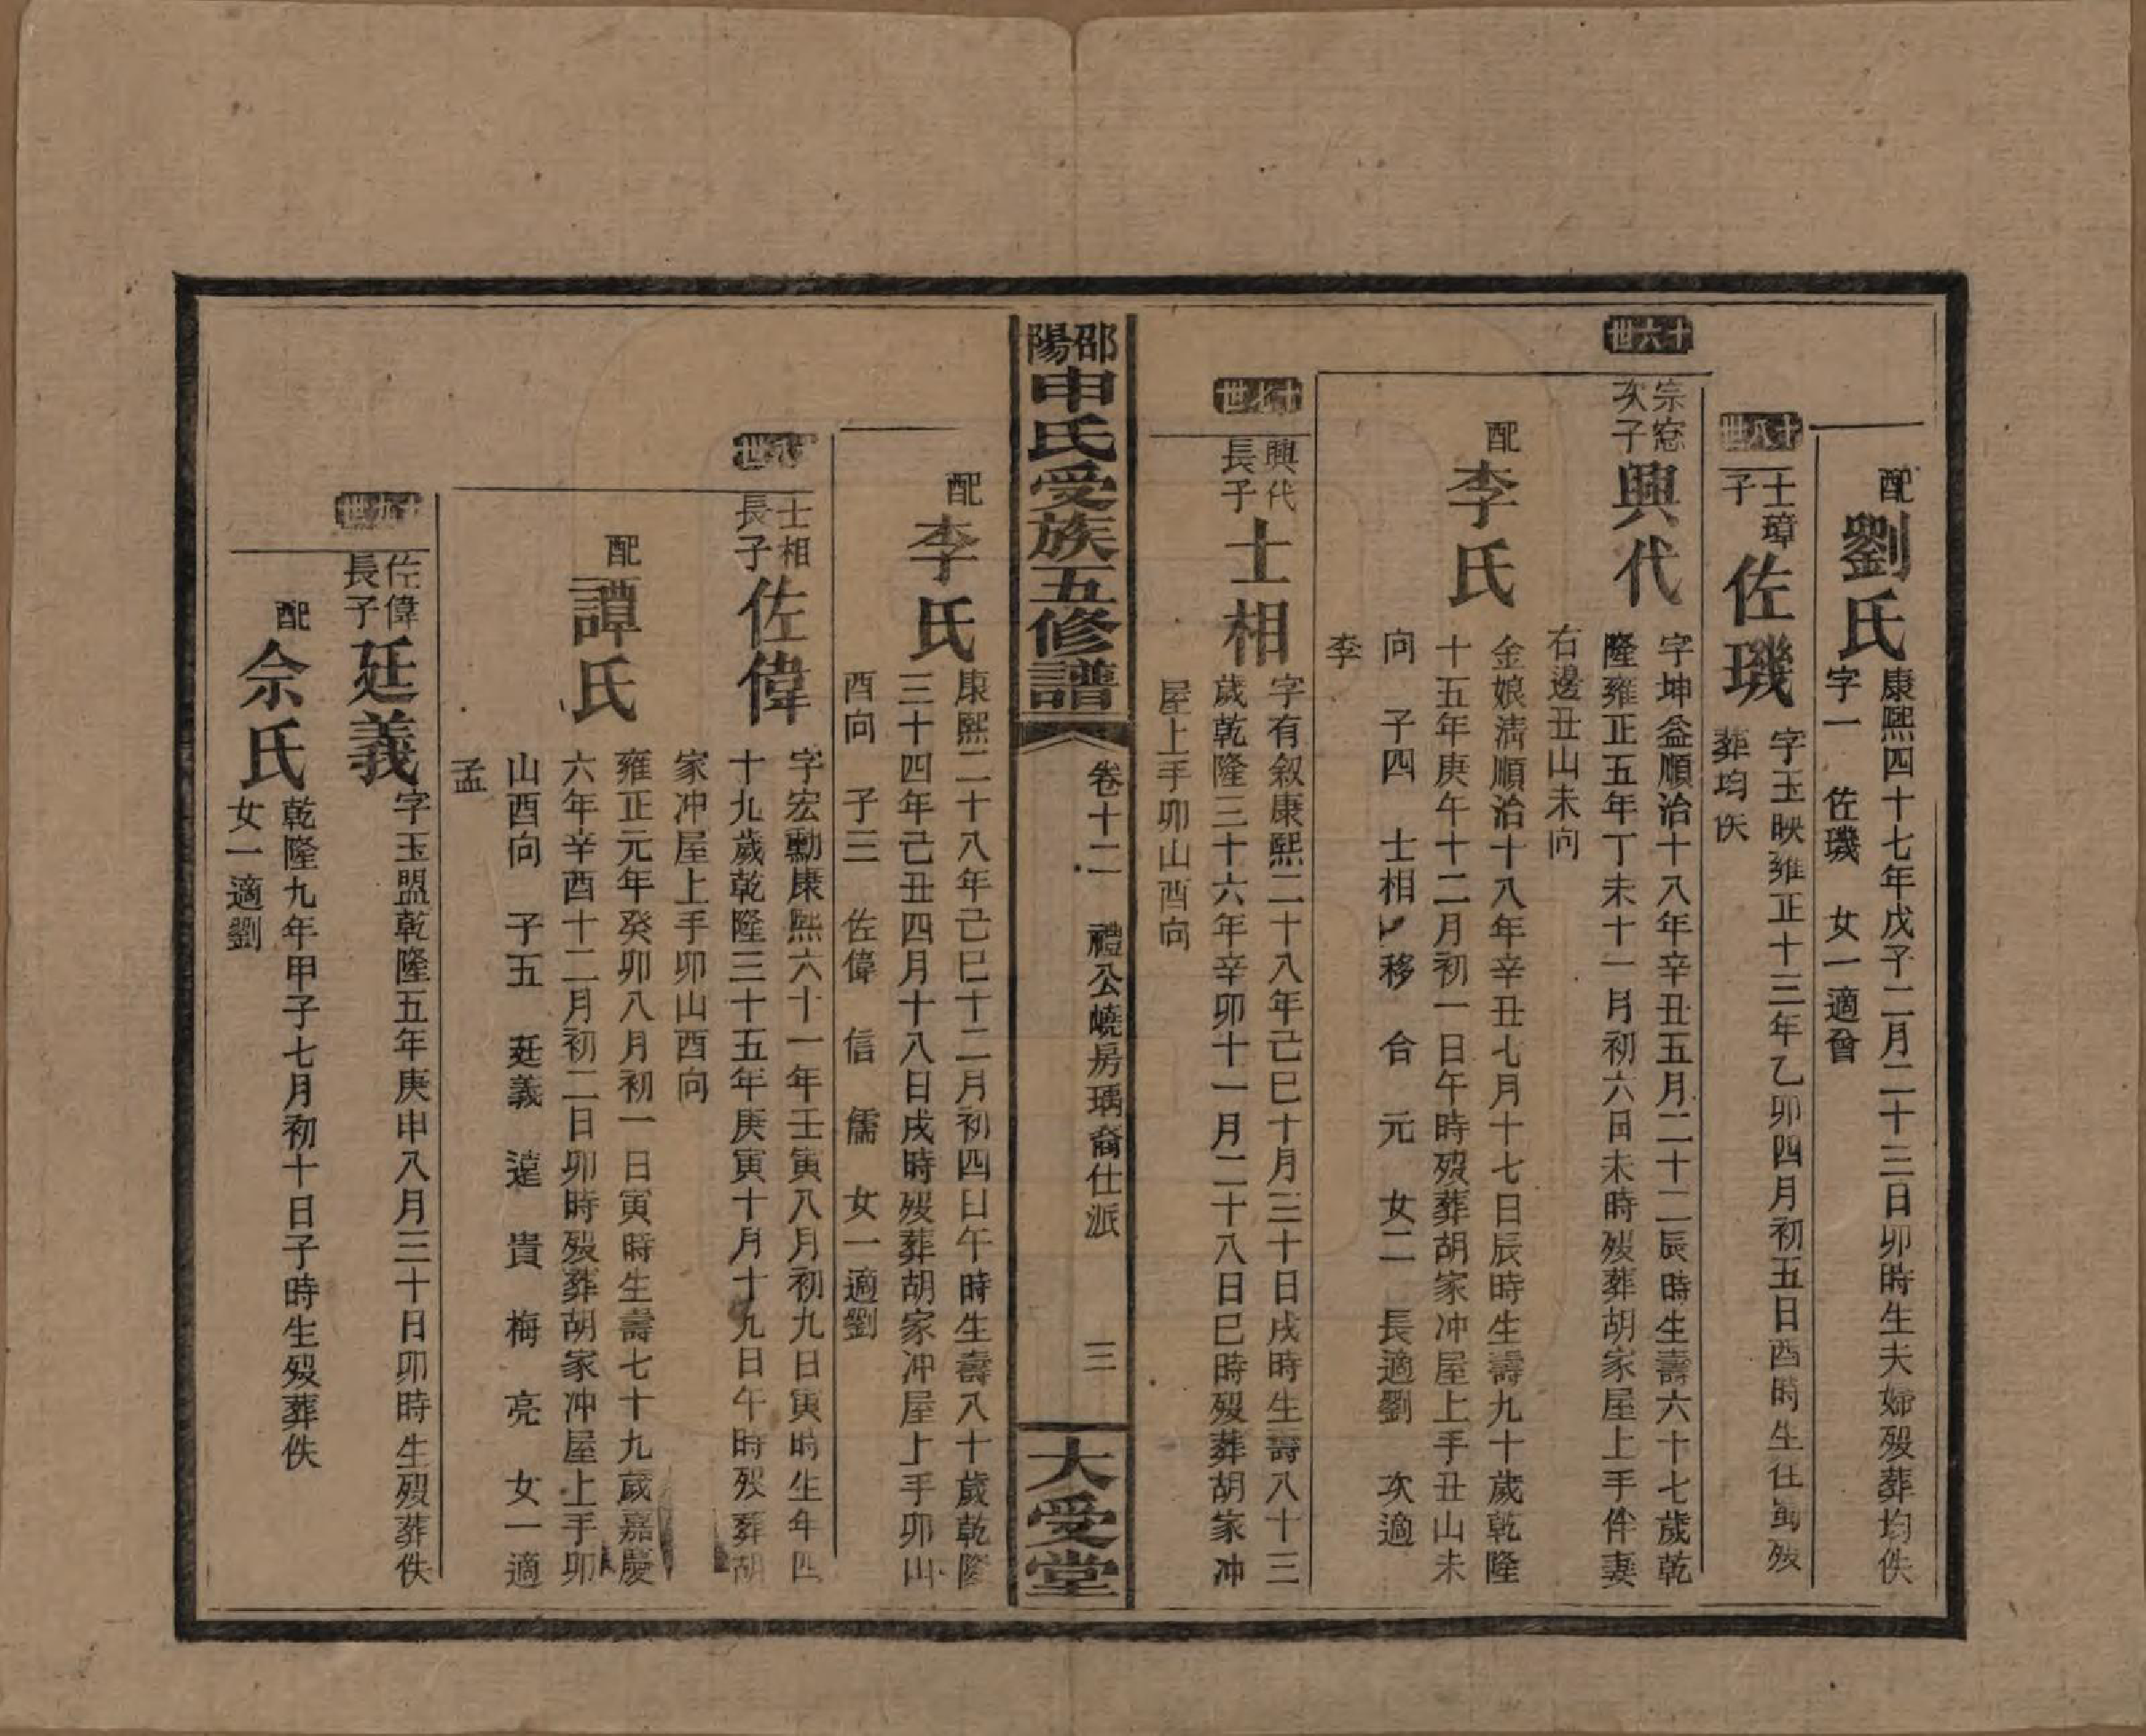 配
劉氏
康熙四十七年戊子二月二十三日卯時生夫婦歿葬均佚
字一　佐璣　女一適曾
十八世
士璋
子
佐璣
字玉映雍正十三年乙卯四月初五日酉時生往蜀歿
葬均佚
十六世
宗窓
次子
興代
字坤益順治十八年辛丑五月二十二辰時生壽六十七歲乾
隆雍正五年丁未十一月初六日未時歿葬胡家屋上手伴妻
右邊丑山未向
配
李氏
金娘淸順治十八年辛丑七月十七日辰時生壽九十歲乾隆
十五年庚午十二月初一日午時歿葬胡家冲屋上手丑山未
向　子四　士相　移　合　元　女二　長適劉　次適
李
十七世
興代
長子
士相
字有敘康熙二十八年己巳十月三十日戌時生壽八十三
歲乾隆三十六年辛卯十一月二十八日巳時歿葬胡家冲
屋上手卯山酉向
邵陽
申氏受族五修譜
卷十二　禮公嶢房瑀裔仕派　三
大受堂
配
李氏
康熙二十八年己巳十二月初四日午時生壽八十歲乾隆
三十四年己丑四月十八日戌時歿葬胡家冲屋上手卯山
酉向　子三　佐偉　信　儒　女一適劉
十八世
士相
長子
佐偉
字宏勳康熙六十一年壬寅八月初九日寅時生年四
十九歲乾隆三十五年庚寅十月十九日午時歿葬胡
家冲屋上手卯山酉向
配
譚氏
雍正元年癸卯八月初一日寅時生壽七十九歲嘉慶
六年辛酉十二月初二日卯時歿葬胡家冲屋上手卯
山酉向　子五　廷義　達　貴　梅　亮　女一適
孟
十九世
佐偉
長子
廷義
字玉盟乾隆五年庚申八月三十日卯時生歿葬佚
配
佘氏
乾隆九年甲子七月初十日子時生歿葬佚
女一適劉